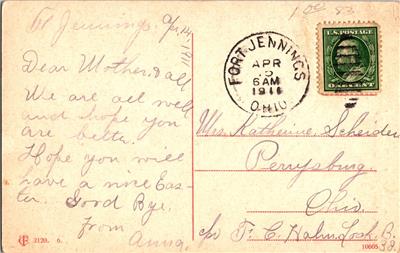 Ft Jennings, O. 4/14 1911
Dear Mother & all
We are all well
and hope you
are better.
Hope you will
have a nice Eas-
ter. Good Bye.
From
Anna.
FORT JENNINGS
APR
15
6AM
1911
OHIO
U.S. POSTAGE
ONE CENT
Mrs. Katherine Scheider
Perrysburg
Ohio.
c/o F. C. Hahn,
2120. 6.
10005